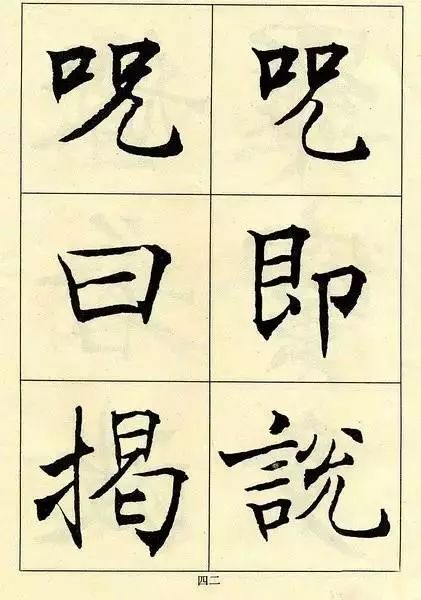 咒即說
咒曰揭
四二